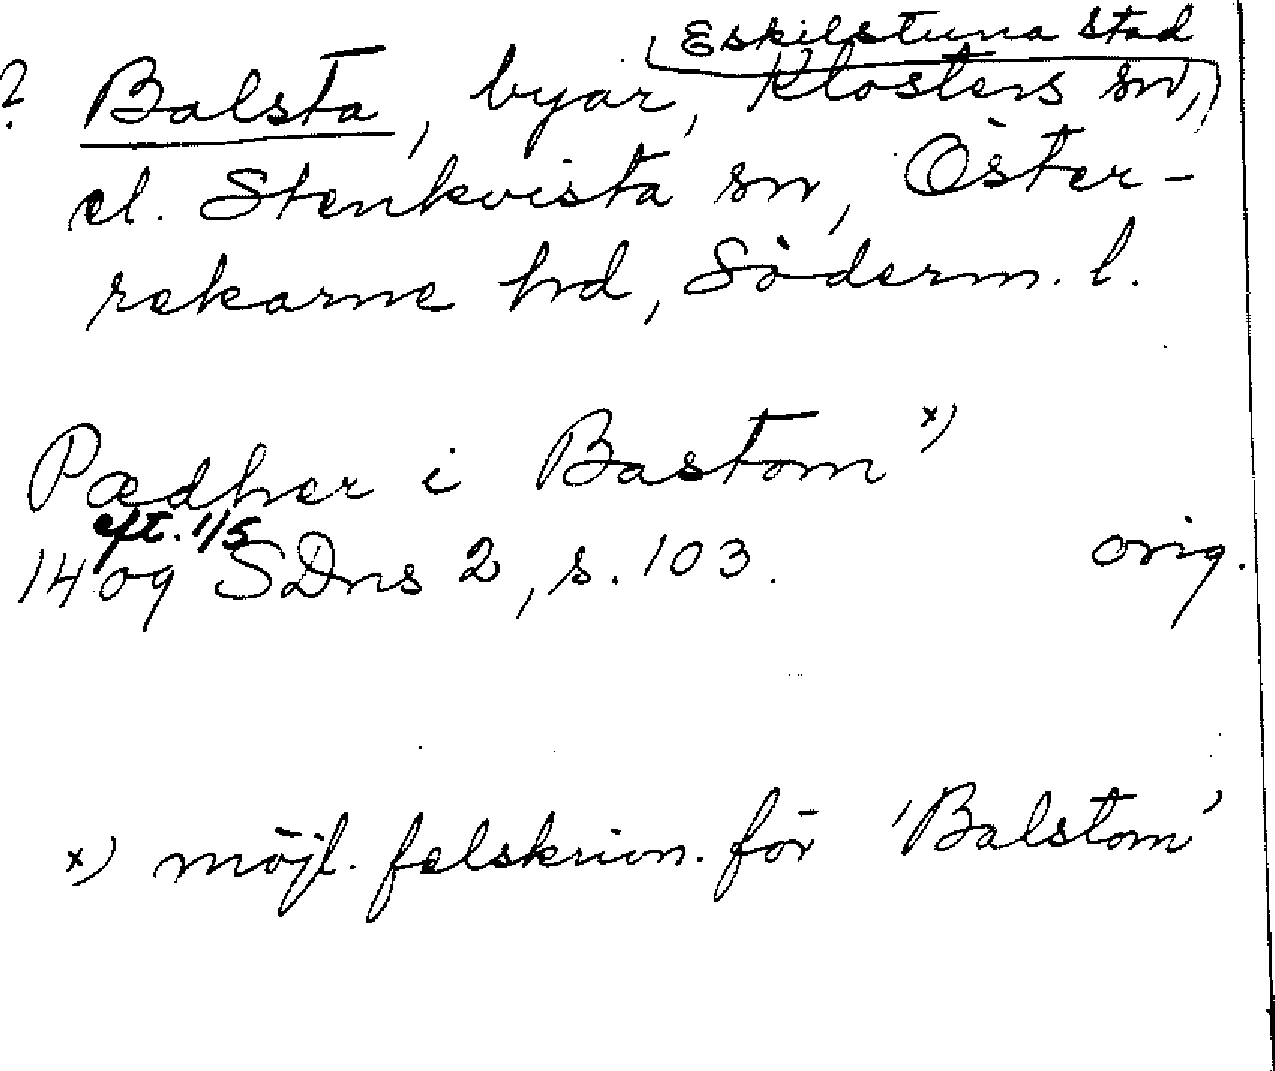 Eskilstuna stad
? Balsta, byar, (Klosters sn,)
el. Stenkvista sn, Öster-
rekarne hd, Söderm. l.
Pædher i Bastom x)
eft. 1/5
1409 SDns 2, s. 103. orig.
x) möjl. felskrivn. för 'Balstom'